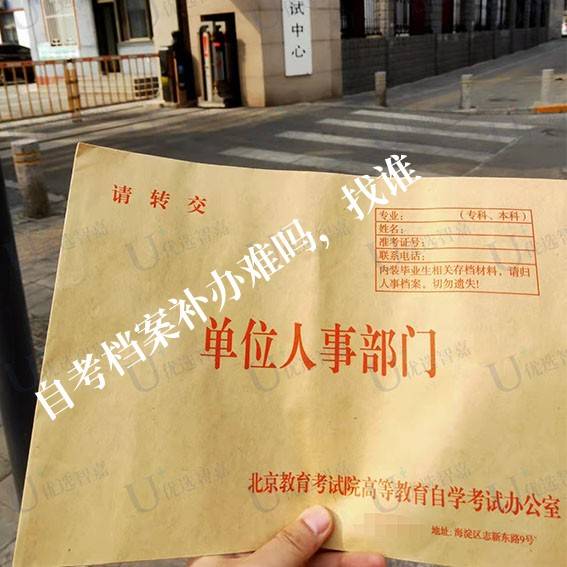 试中心
请转交
专业: (专科、本科)
姓名:
准考证号:
联系电话:
内装毕业生相关存档材料, 请归
人事档案。切勿遗失!
自考档案补办难吗,找谁
单位人事部门
北京教育考试院高等教育自学考试办公室
地址: 海淀区志新东路9号
U+优选智嘉